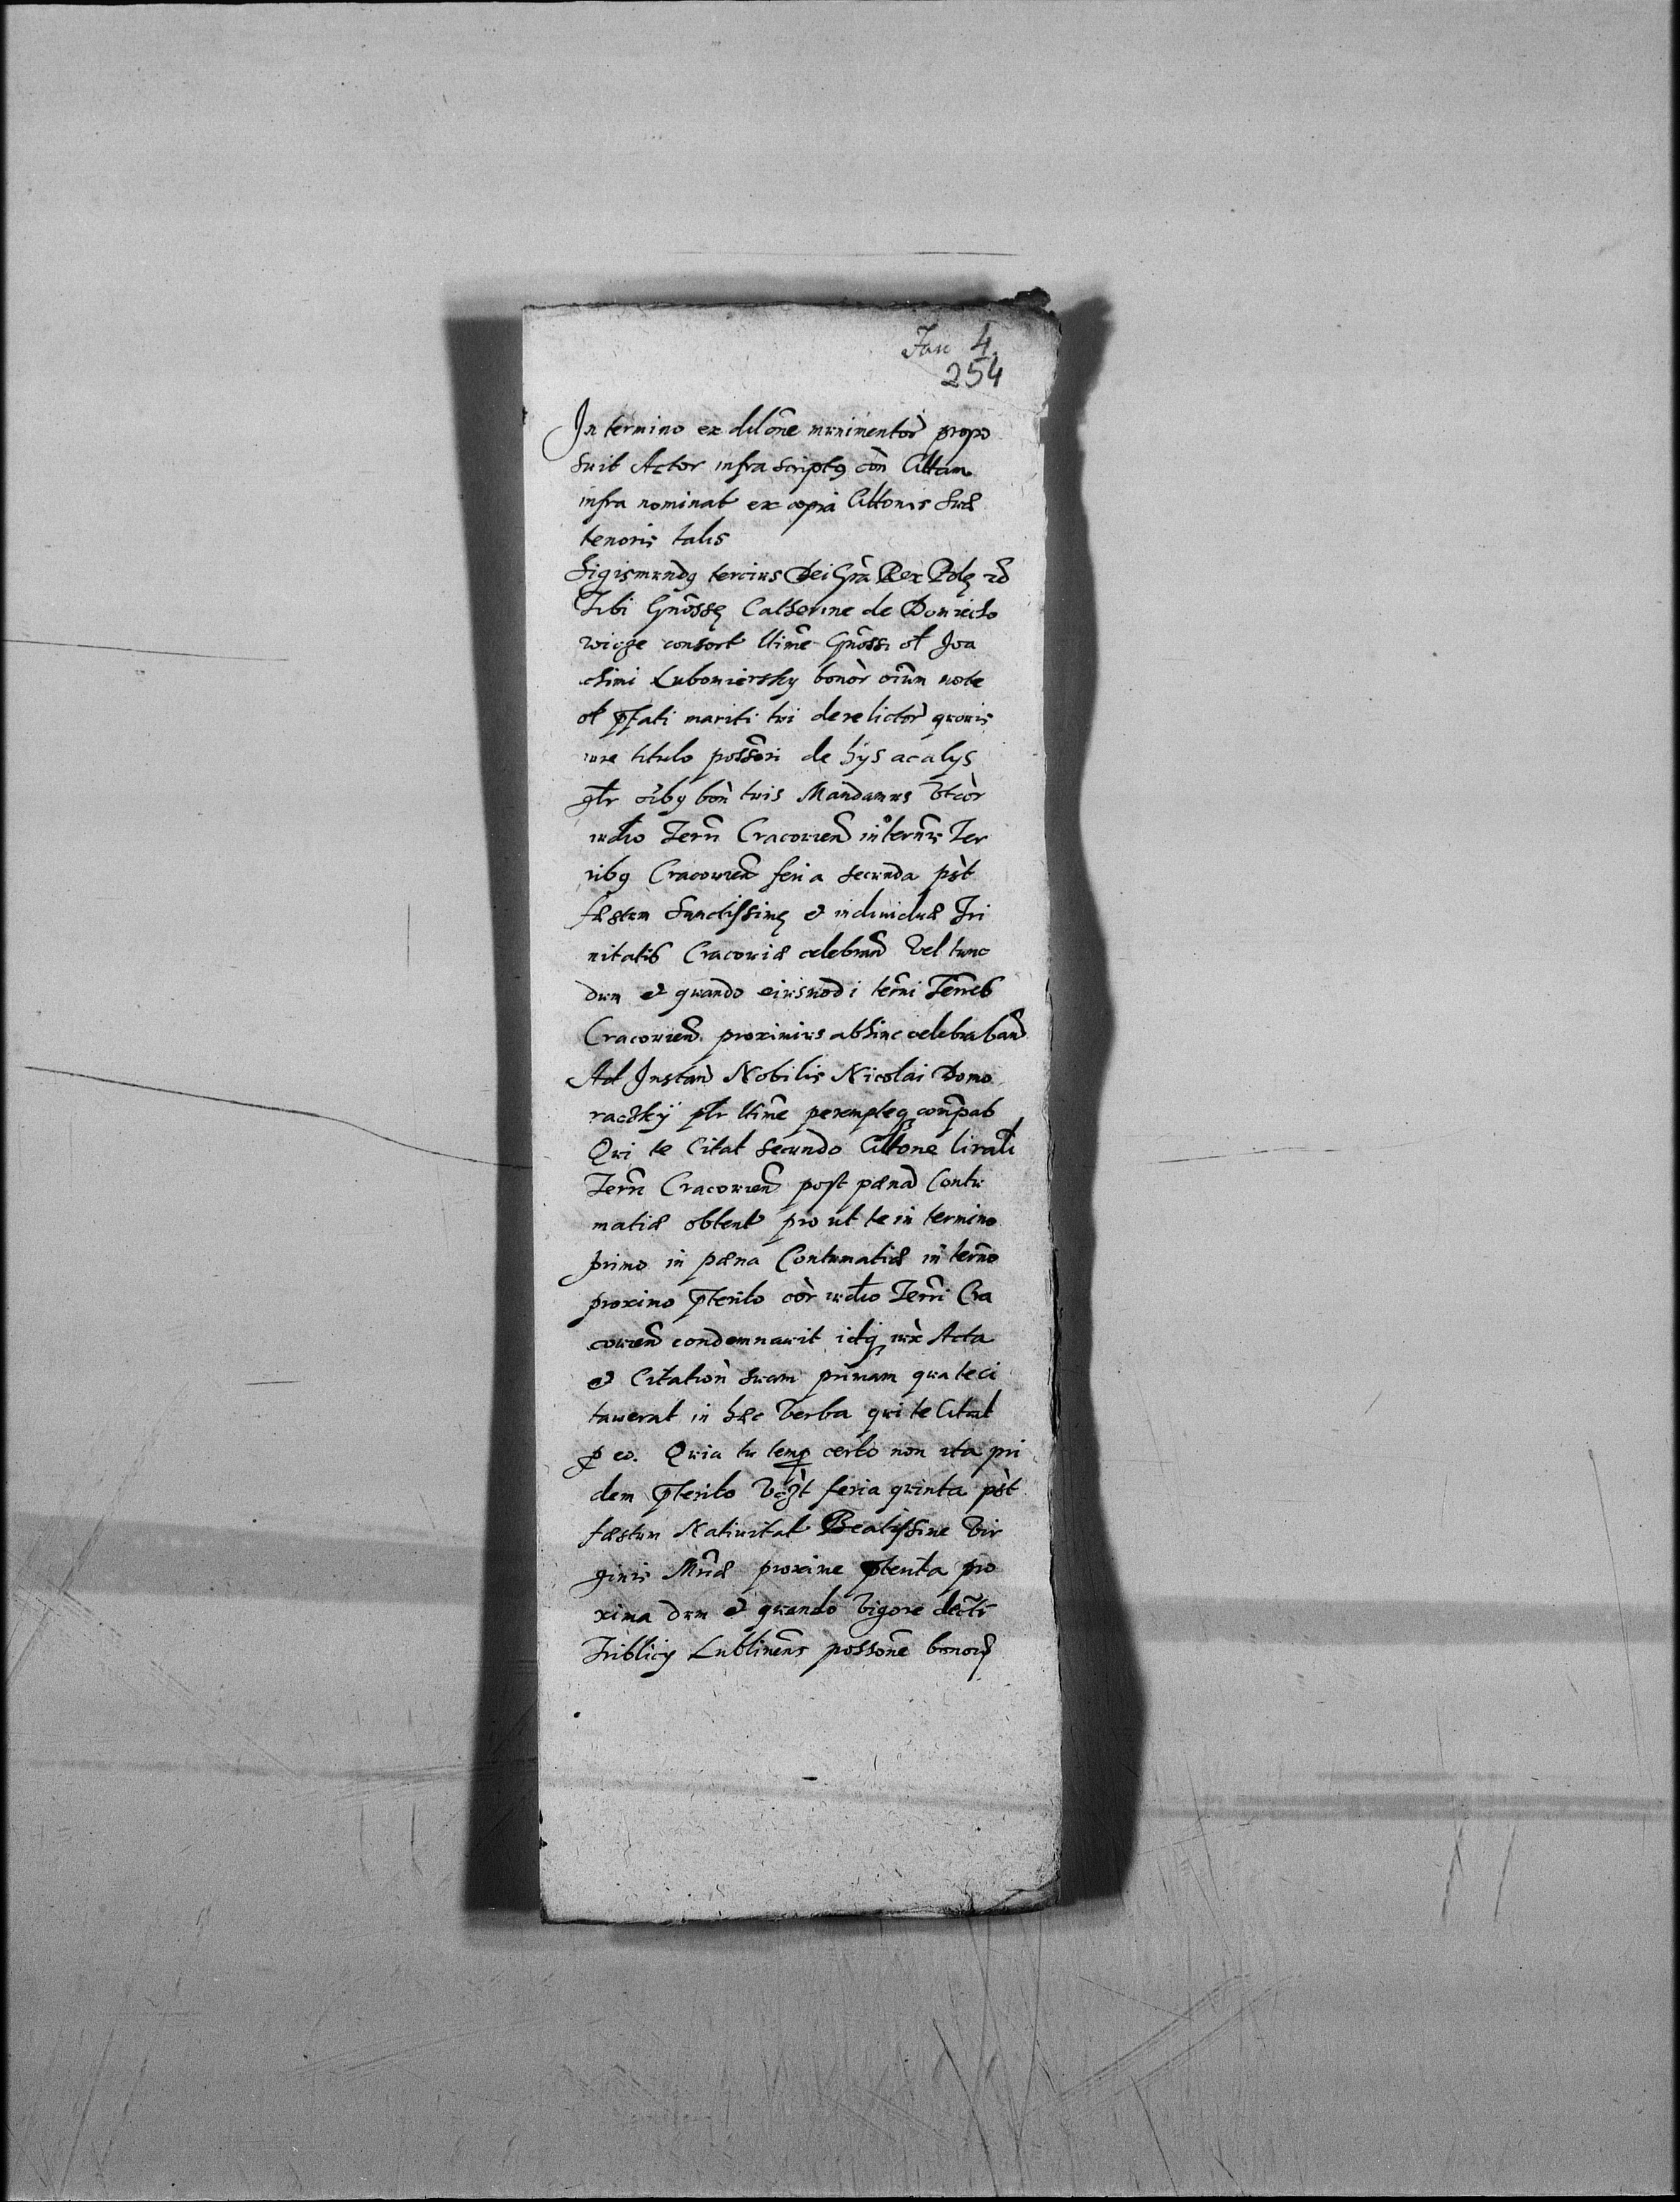 Fasc 4.
254
In termino ex dilone munimentor propo
suit Actor infra scriptus con Cittam
infra nominat ex copia Cittonis suæ
tenoris talis
Sigismundus tercius Dei Gra Rex Polę
Tibi Gnosę Catherine de Doniecho
wicze consort ltime Gnosi ol Joa
chimi Lubomiersky bonor oium note
ol pfati mariti tui derelictor quouis
iure titulo possori de hÿs acalys
gtr oibus bon tuis Mandamus vt cor
iudio Terri Cracouien in termis Ter
ribus Cracouien feria secunda pòt
fæstum Sanctissimę et indiuiduæ Tri
nitatis Cracouiæ celebrand vel tunc
dum et quando eiusmodi termi Terres
Cracouien proximius abhinc celebraban
Ad Instan Nobilis Nicolai Domo
raczkÿ ptr ltime peremptęq compab
Qui te Citat secundo Cittone lirali
Terri Cracouien post pænam Contu
matiæ obtent pro ut te in termino
primo in pæna Contumatiæ in termo
proximo pterito còr iudio Terri Cra
couien condemnauit idq iux Acta
et Citation suam primam qua te ci
tauerat in hæc verba qui te Citat
p eo. Quia tu temp certo non ita pri
dem pterito vczt feria quinta pòt
fæstum Natiuitat Beatissime Vir
ginis Mriæ proxime pterita pro
xima dum et quando vigore decti
Triblicy Lublinens possone bonor